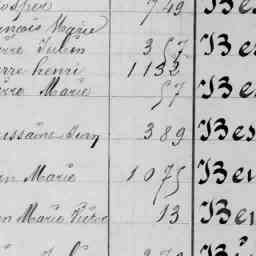 osper 749 Bes
ançois Marie
erre Julien 357 Bes
erre henri 1132
erre Marie 57 Bes
oussaint Jean 389 Bes
an Marie 1075 Beu
an Marie Pierre 13 Beu